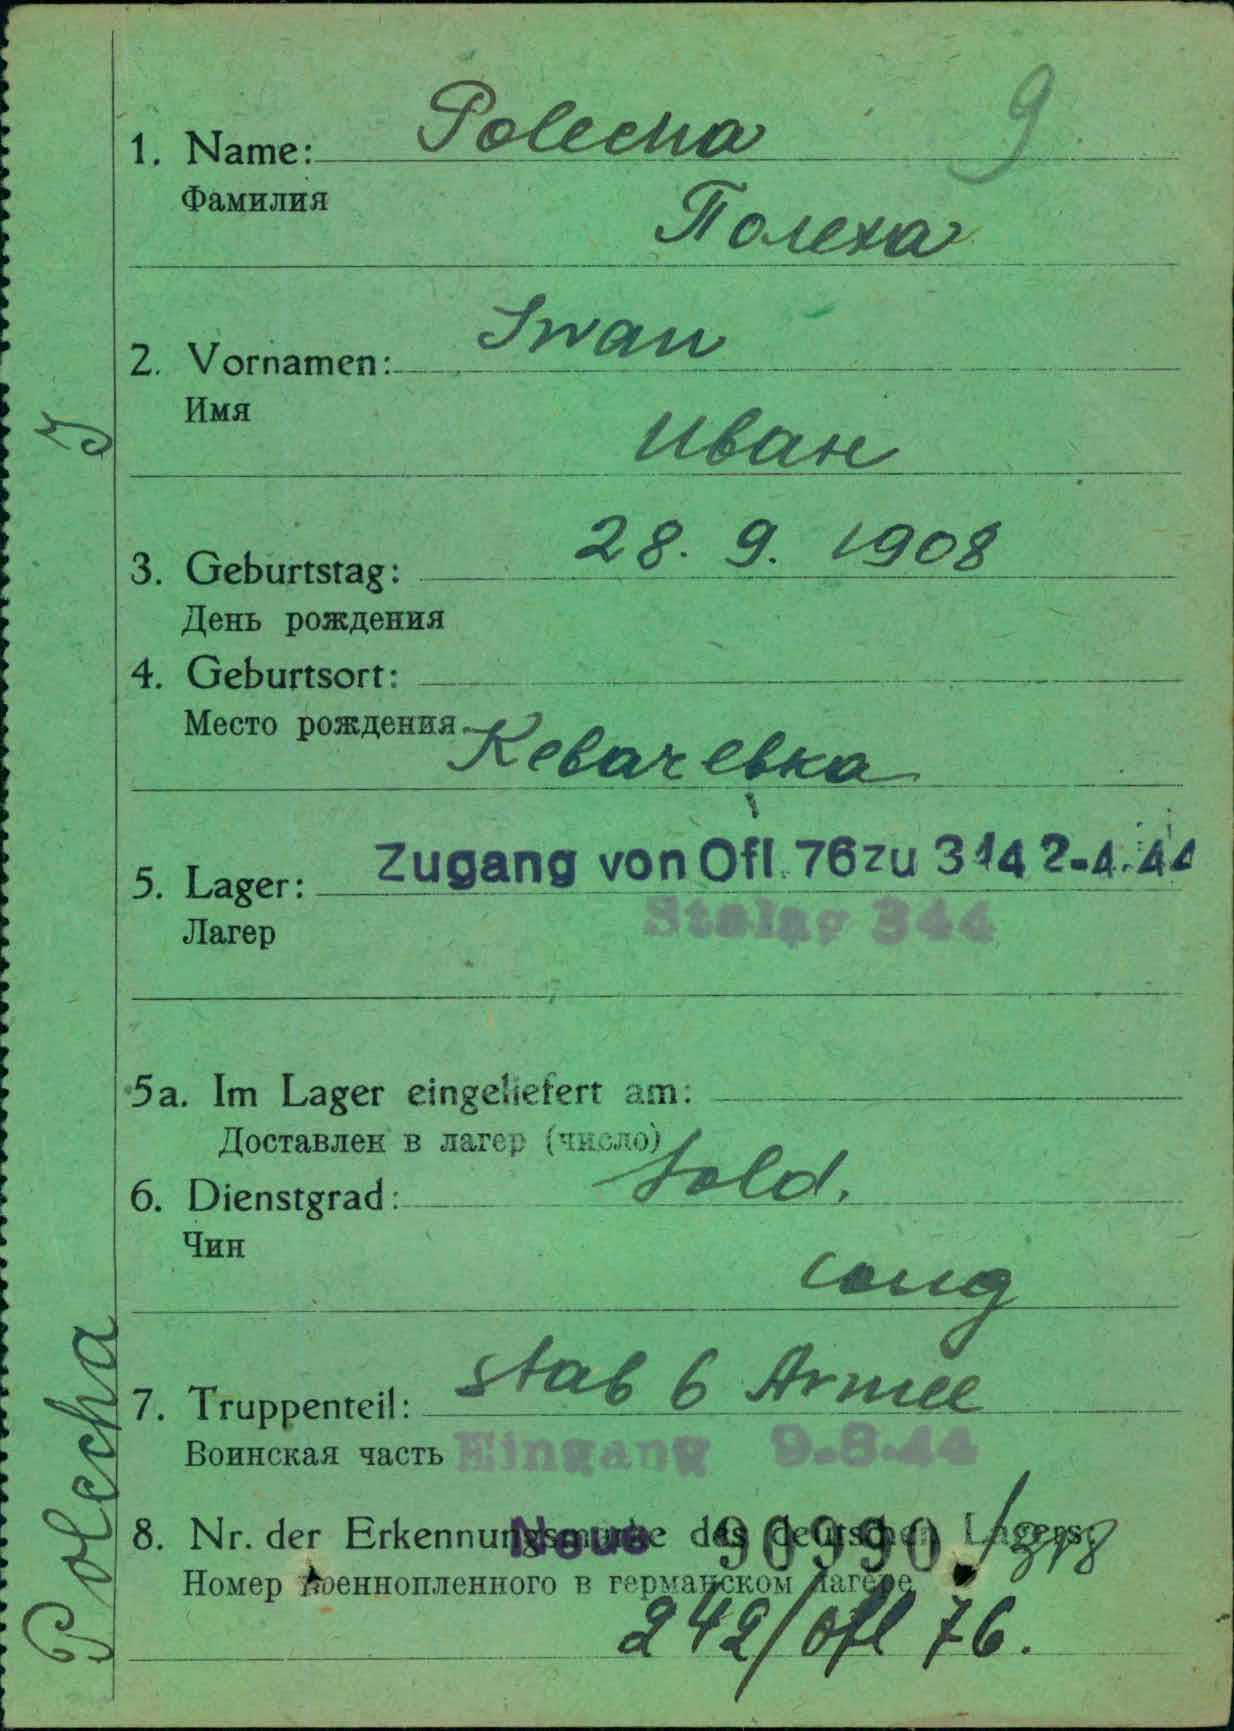 9
1. Name: Polecha
Фамилия
Полеха
2. Vornamen: Iwan
Имя
Иван
3. Geburtstag: 28. 9. 1908
День рождения
4. Geburtsort:
Место рождения
Кевачевка
Zugang von Ofl. 76 zu 314 2-4.44
5. Lager:
Stalag 344
Лагер
5a. Im Lager eingeliefert am:
Доставлен в лагер (число)
6. Dienstgrad: Sold.
Чин
солд
7. Truppenteil: Stab 6 Armee
Воинская часть Eingang 9-8-44
8. Nr. der Erkennungsmarke des deutschen Lagers:
Neue 90990 /318
Номер военнопленного в германском лагере
242/Ofl 76.
Polecha J